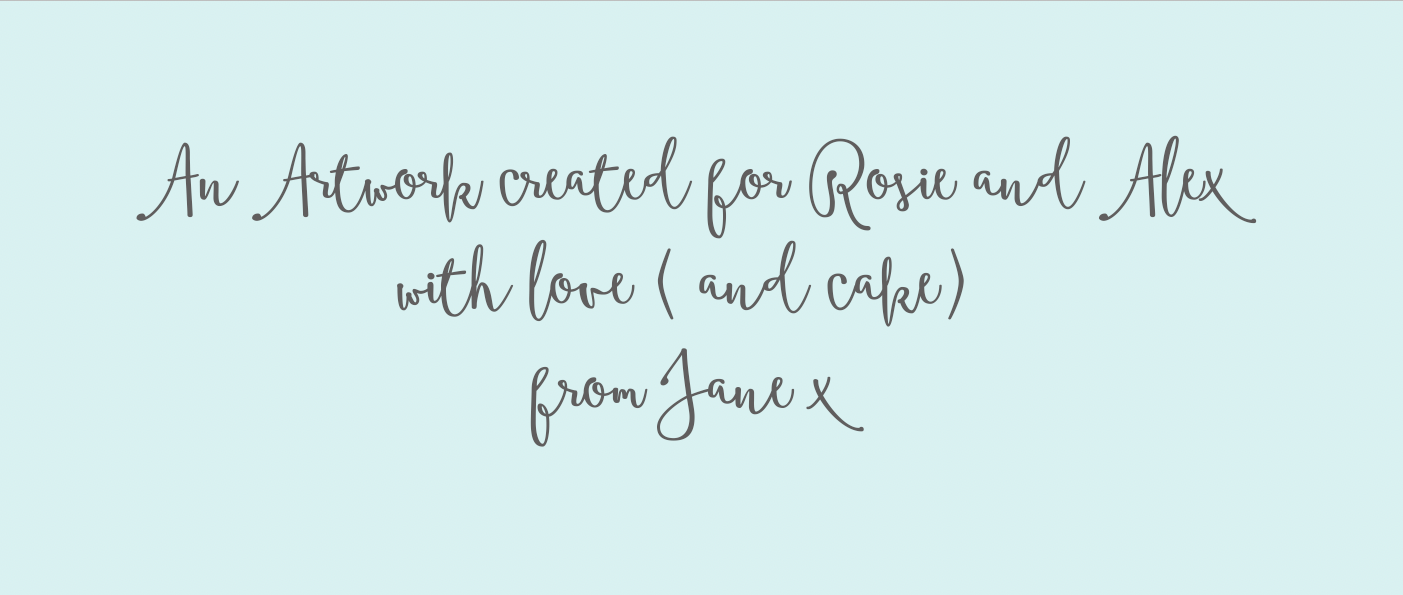 An Artwork created for Rosie and Alex
with love ( and cake)
from Jane x